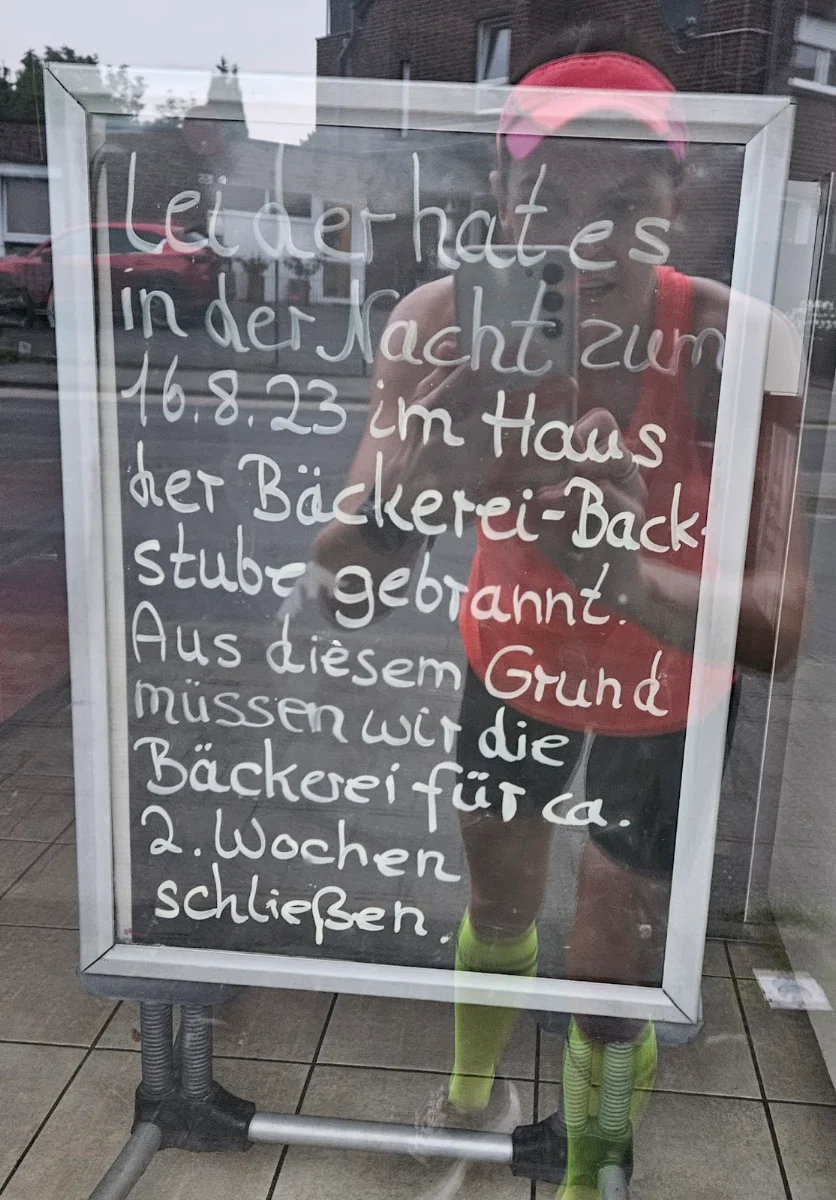 Leider hat es
in der Nacht zum
16.8.23 im Haus
der Bäckerei-Back-
stube gebrannt.
Aus diesem Grund
müssen wir die
Bäckerei für ca.
2. Wochen
schließen.